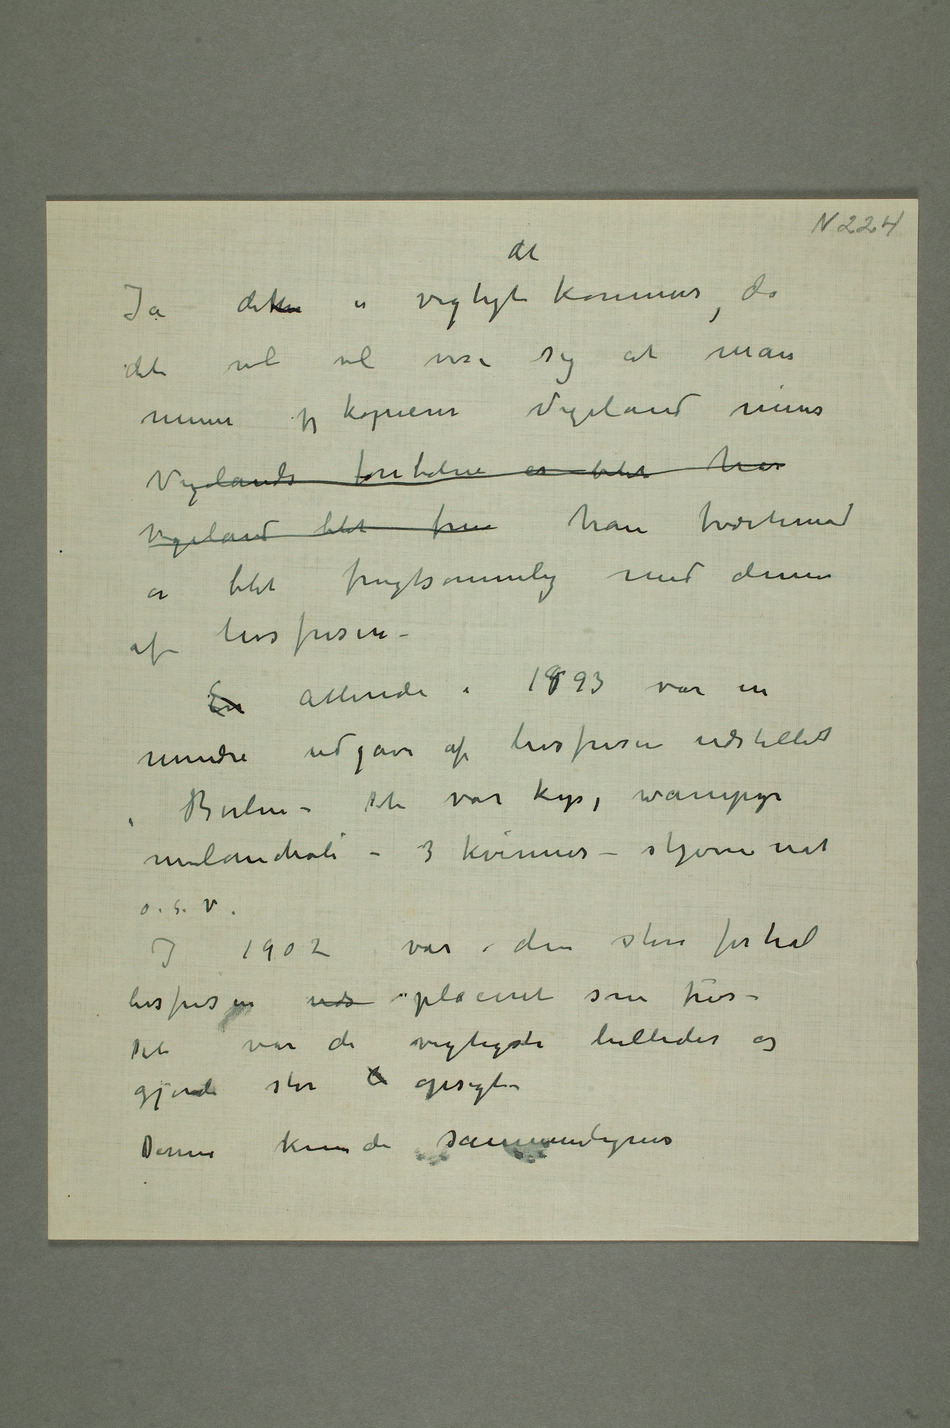 N 224
det
Ja dette er vigtigt kommer, da
det vel vil vise sig at man
mener jeg kopierer Vigeland mens
Vigelands fontæne er blet har
Vigeland blet frem han tværtimod
er blet frugtsommelig med denne
af livsfrisen –
En Allerede i 1893 var en
mindre udgave af livsfrisen udstillet
i Berlin – Det var kys, wampyr
melancholi – 3 kvinner – stjerne nat
o. s. v.
I 1902 var i den store forhal
livsfrisen uds placeret som fris –
Det var de vigtigste billeder og
gjorde stor opsigt –
Denne kunde sammenlignes